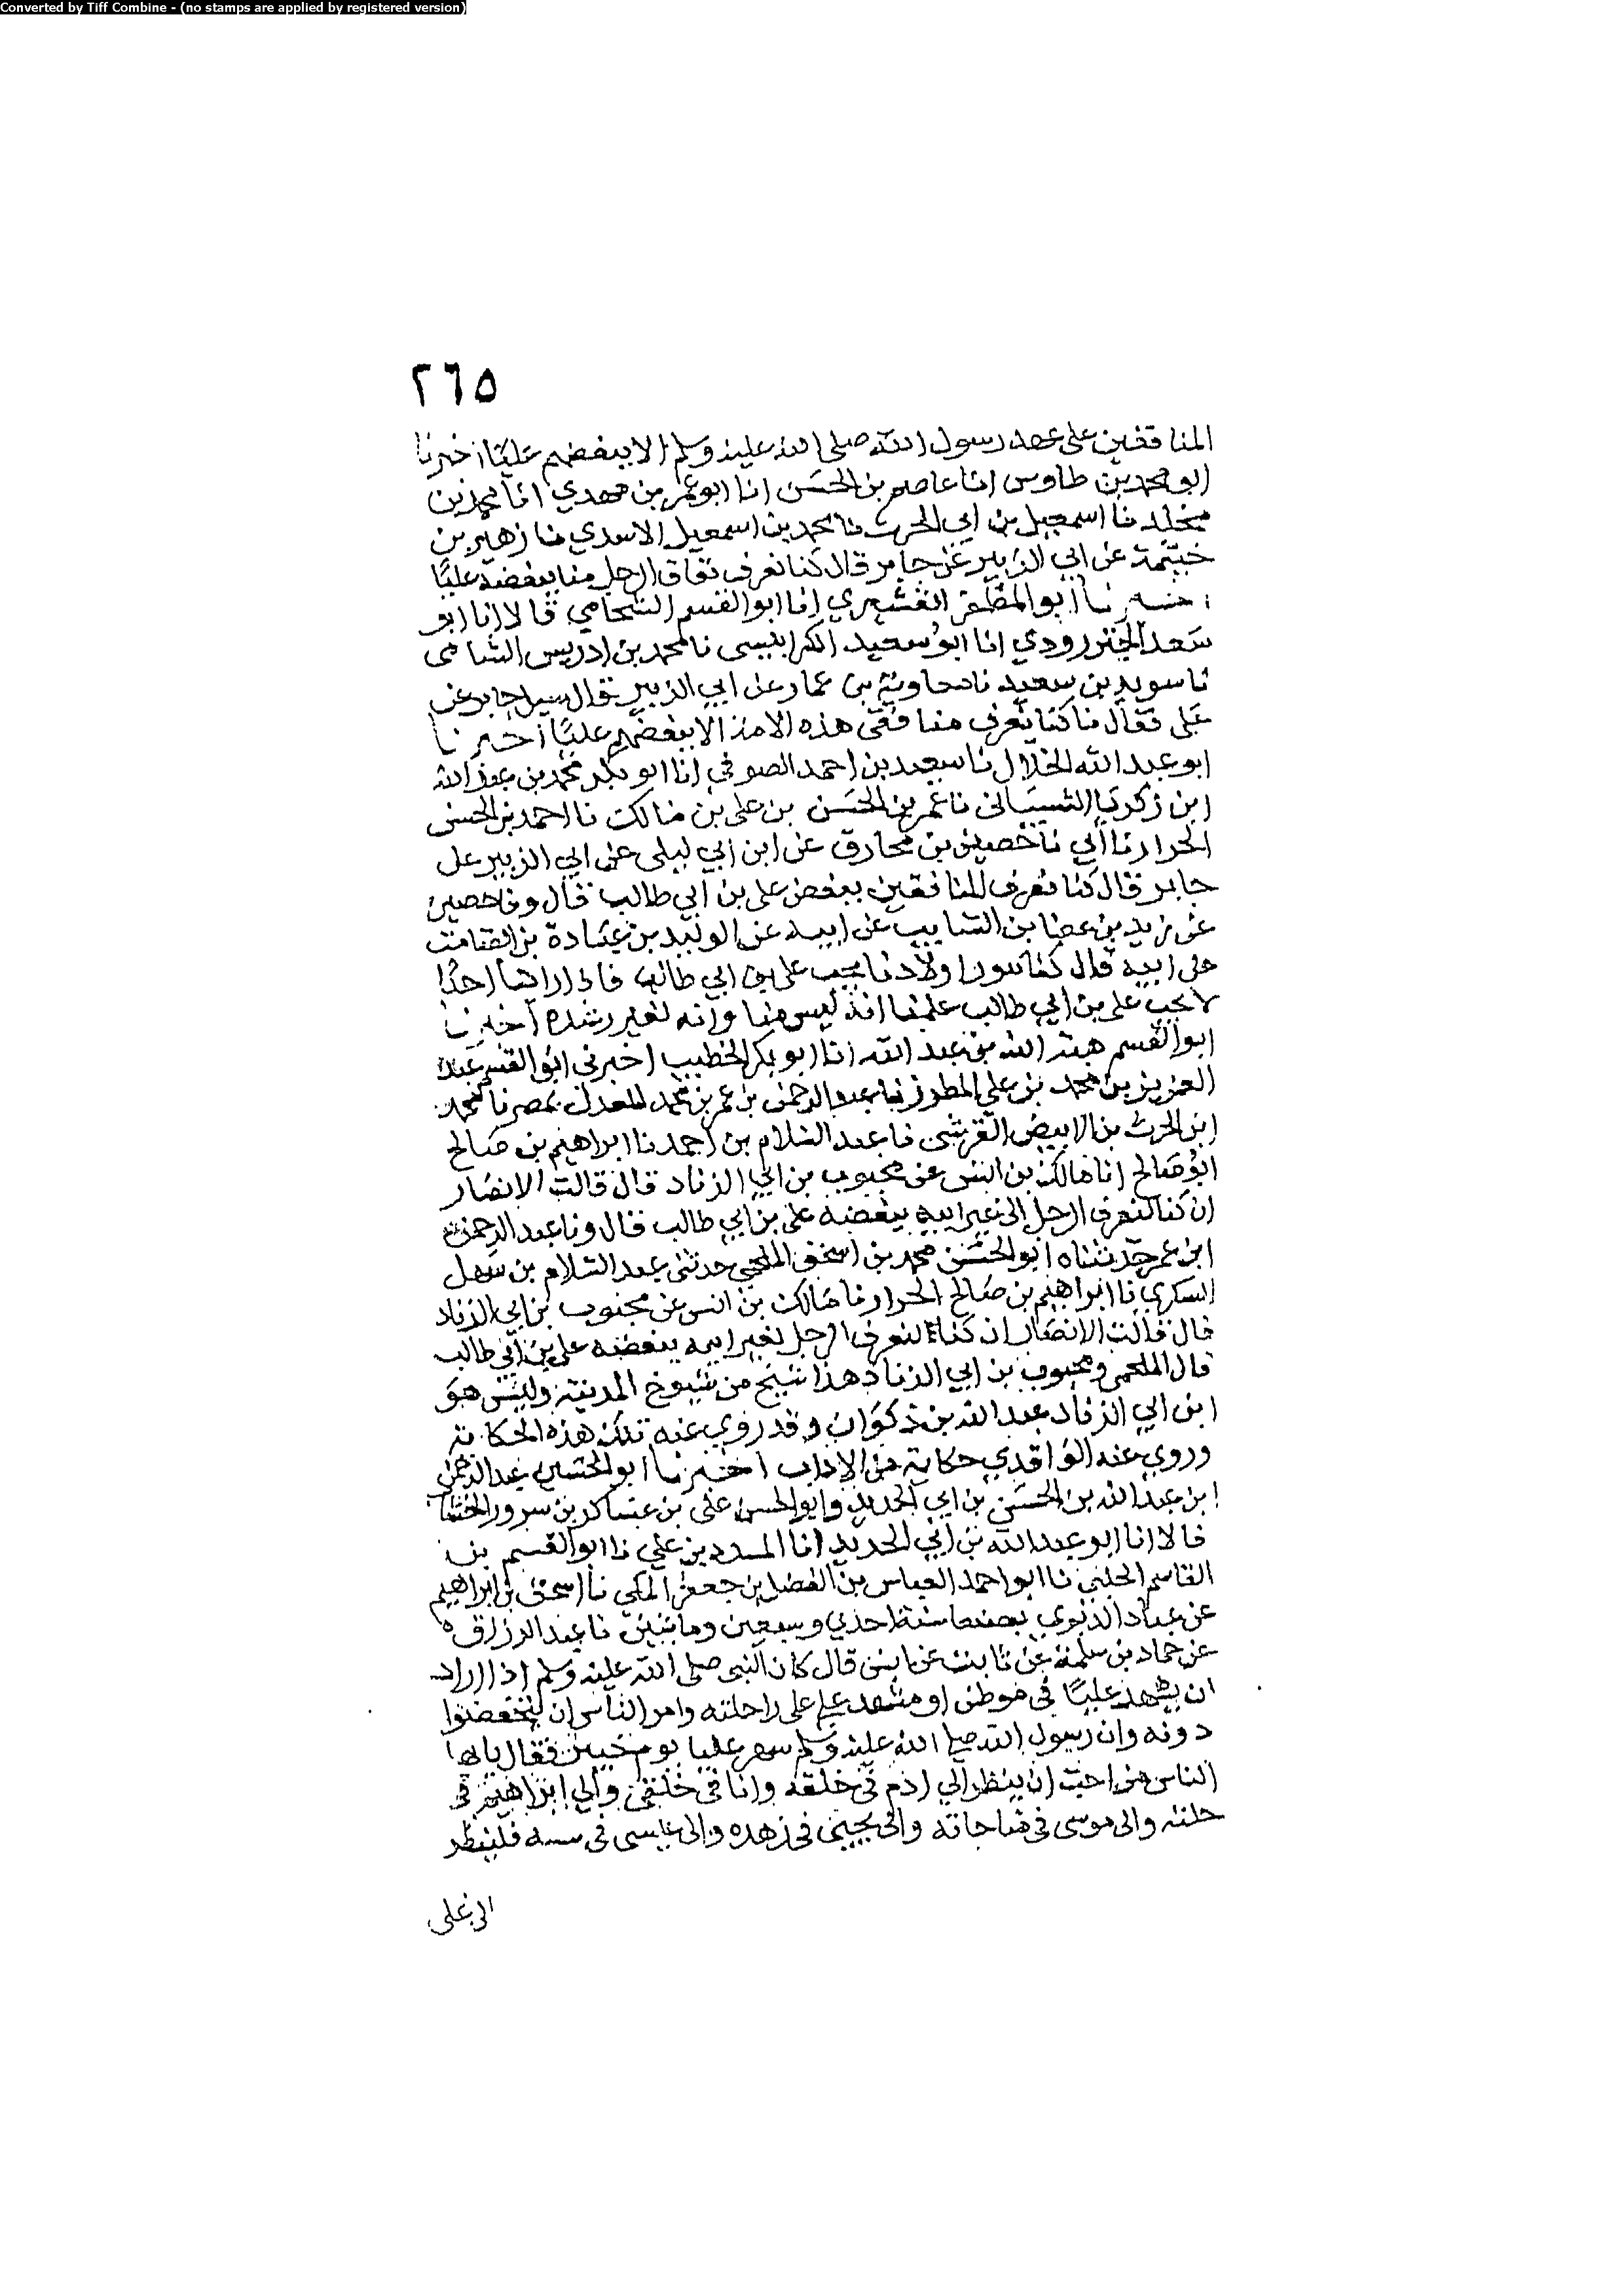 Converted by Tiff Combine - (no stamps are applied by registered version)
٢٦٥
المنافقين على عهد رسول الله صلى الله عليه وسلم الا ببغضهم عليًا اخبرنا
ابو محمد بن طاوس انا عاصم بن الحسن انا ابو عمر بن مهدي انا محمد بن
مخلد نا اسمعيل بن ابي الحرث نا محمد بن اسمعيل الاسدي نا زهير بن
خيثمة عن ابي الزبير عن جابر قال كنا نعرف نفاق الرجل منا ببغضه عليًا
اخبرنا ابو المظفر القشيري انا ابو القسم الشحامي قالا انا ابو
سعد الجنزرودي انا ابو سعيد الكرابيسي نا محمد بن ادريس الشامي
نا سويد بن سعيد نا معاوية بن عمار عن ابي الزبير قال سيل جابر عن
علي فقال ما كنا نعرف منافقي هذه الامة الا ببغضهم عليًا اخبرنا
ابو عبد الله الخلال نا سعيد بن احمد الصوفي انا ابو بكر محمد بن عبد الله
ابن زكريا الشيباني نا عمر بن الحسن بن علي بن مالك نا احمد بن الحسن
الحراز نا ابي نا حصين بن مخارق عن ابن ابي ليلى عن ابي الزبير عن
جابر قال كنا نعرف المنافقين ببغض علي بن ابي طالب قال ونا حصين
عن زيد بن عطا بن السايب عن ابيه عن الوليد بن عبادة بن الصامت
عن ابيه قال كنا اولادنا بحب علي بن ابي طالب فاذا راينا احدًا
لا يحب علي بن ابي طالب علمنا انه ليس منا وانه لغير رشده اخبرنا
ابو القسم هبة الله بن عبد الله انا ابو بكر الخطيب اخبرني ابو القسم عبد
العزيز بن محمد بن علي المطرز نا عبد الرحمن بن عمر بن محمد المعدل بمصر نا محمد
ابن الحرث بن الابيض القرشي نا عبد السلام بن احمد نا ابراهيم بن صالح
ابو صالح انا مالك بن انس عن محبوب بن ابي الزناد قال قالت الانصار
ان كنا لنعرف الرجل الى غير ابيه ببغضه علي بن ابي طالب قال ونا عبد الرحمن
ابن عمر حدثناه ابو الحسن محمد بن اسحق الملحمي حدثني عبد السلام بن سهل
السكري نا ابراهيم بن صالح الحراز نا مالك بن انس عن محبوب بن ابي الزناد
قال قالت الانصار ان كنا لنعرف الرجل لغير ابيه ببغضه علي بن ابي طالب
قال الملحمي ومحبوب بن ابي الزناد هذا شيخ من شيوخ المدينة وليس هو
ابن ابي الزناد عبد الله بن ذكوان وقد روي عنه تلك هذه الحكاية
وروي عنه الواقدي حكاية من الاداب اخبرنا ابو الحسين عبد الرحمن
ابن عبد الله بن الحسن بن ابي الحديد وابو الحسن علي بن عساكر بن سرور الخشاب
قالا انا ابو عبد الله بن ابي الحديد انا المسدد بن علي نا ابو القسم بن
القاسم الحلبي نا ابو احمد العباس بن الفضل بن جعفر المكي نا اسحق بن ابراهيم
عن عباد الدبري بصنعا سنة احدي وسبعين ومائتين نا عبد الرزاق
عن حماد بن سلمة عن ثابت عن انس قال كان النبي صلى الله عليه وسلم اذا اراد
ان يشهد عليًا في موطن او مشهد علي على راحلته وامر الناس ان ينخفضوا
دونه وان رسول الله صلى الله عليه وسلم شهر عليا يوم خيبر فقال يا ايها
الناس من احب ان ينظر الي ادم في خلقه وانا في خلقي والي ابراهيم في
خلته والى موسى في مناجاته والى يحيى في زهده والى عيسى في سنه فلينظر
الى علي